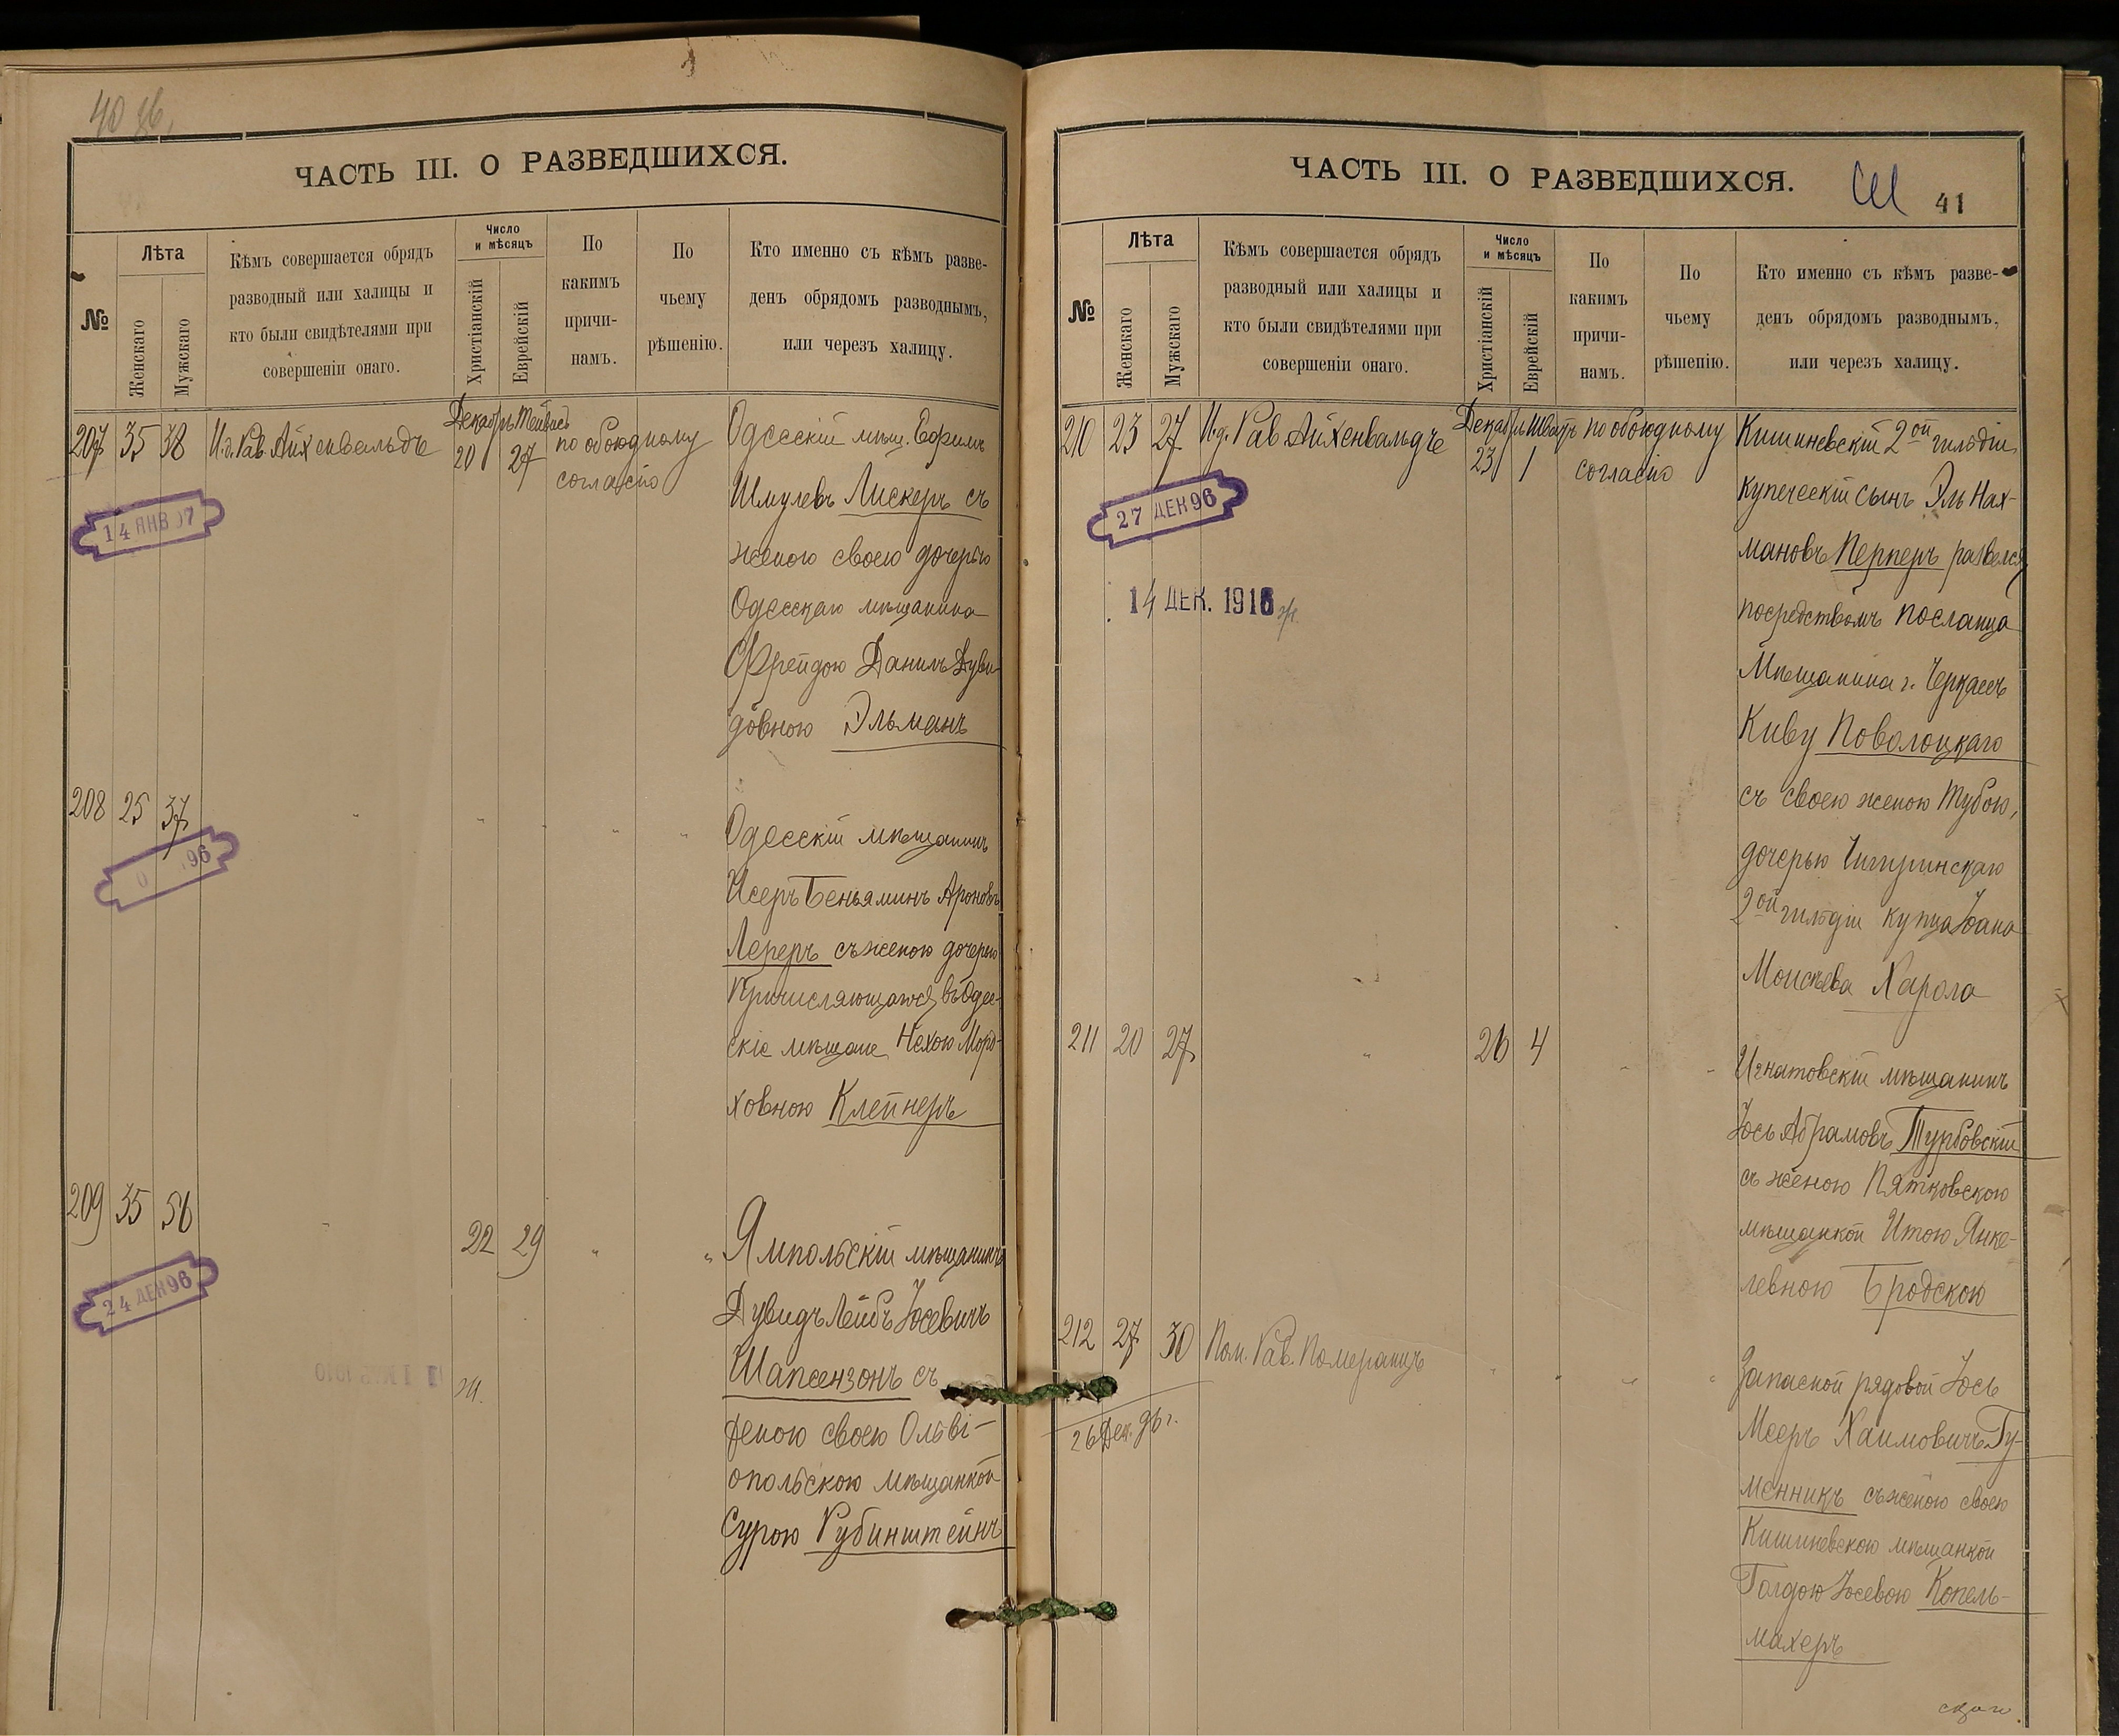 40 об.
ЧАСТЬ III. О РАЗВЕДШИХСЯ.
№
Лѣта
Женскаго
Мужскаго
Кѣмъ совершается обрядъ
разводный или халицы и
кто были свидѣтелями при
совершеніи онаго.
Число
и мѣсяцъ
Христіанскій
Еврейскій
По
какимъ
причи-
намъ.
По
чьему
рѣшенію.
Кто именно съ кѣмъ разве-
денъ обрядомъ разводнымъ,
или через халицу.
207 35 38 И.д. Рав. Айхенвальдъ Декабрь 20 Тейвисъ 27 по обоюдному
согласію
Одесскій мѣщ. Ефроимъ
Шмулевъ Лискеръ съ
женою своею дочерью
Одесскаго мѣщанина
Фрейдою Данилъ Дуви-
довною Эльманъ
14 ЯНВ 97
208 25 37 " " " "
Одесскій мѣщанинъ
Исеръ Беньяминъ Ароновъ
Лереръ съ женою дочерью
причисляющагося въ Одес-
скіе мѣщане Нехою Морд-
ховною Клейнеръ
96
209 35 56 " 22 29 " "
Ямпольскій мѣщанинъ
Дувидъ Лейбъ Іосевичъ
Шапсензонъ съ
женою своею Ольві-
опольскою мѣщанкой
Сурою Рубинштейнъ
24 ДЕК 96
ЧАСТЬ III. О РАЗВЕДШИХСЯ.
41
№
Лѣта
Женскаго
Мужскаго
Кѣмъ совершается обрядъ
разводный или халицы и
кто были свидѣтелями при
совершеніи онаго.
Число
и мѣсяцъ
Христіанскій
Еврейскій
По
какимъ
причи-
намъ.
По
чьему
рѣшенію.
Кто именно съ кѣмъ разве-
денъ обрядомъ разводнымъ,
или черезъ халицу.
210 23 27 И.д. Рав. Айхенвальдъ Декабрь 23 Шватъ 1 по обоюдному
согласію
Кишиневскій 2ой гильдіи
купеческій сынъ Эль Нах-
мановъ Перперъ развелся
посредствомъ посланца
Мѣщанина г. Черкассъ
Киву Поволоцкаго
съ своею женою Тубою,
дочерью Чигиринскаго
2ой гильдіи купца Іоана
Моисѣева Харола
27 ДЕК 96
14 ДЕК. 1916
211 20 27 " 26 4 " "
Игнатовскій мѣщанинъ
Іось Абрамовъ Турбовскій
съ женою Пятковскою
мѣщанкой Итою Янке-
левною Бродскою
212 27 30 Пом. Рав. Померанцъ " " " "
Запасной рядовой Іось
Мееръ Хаимовичъ Гу-
менникъ съ женою своею
Кишиневскою мѣщанкой
Голдою Іосевою Копель-
махеръ
26 Дек. 96 г.